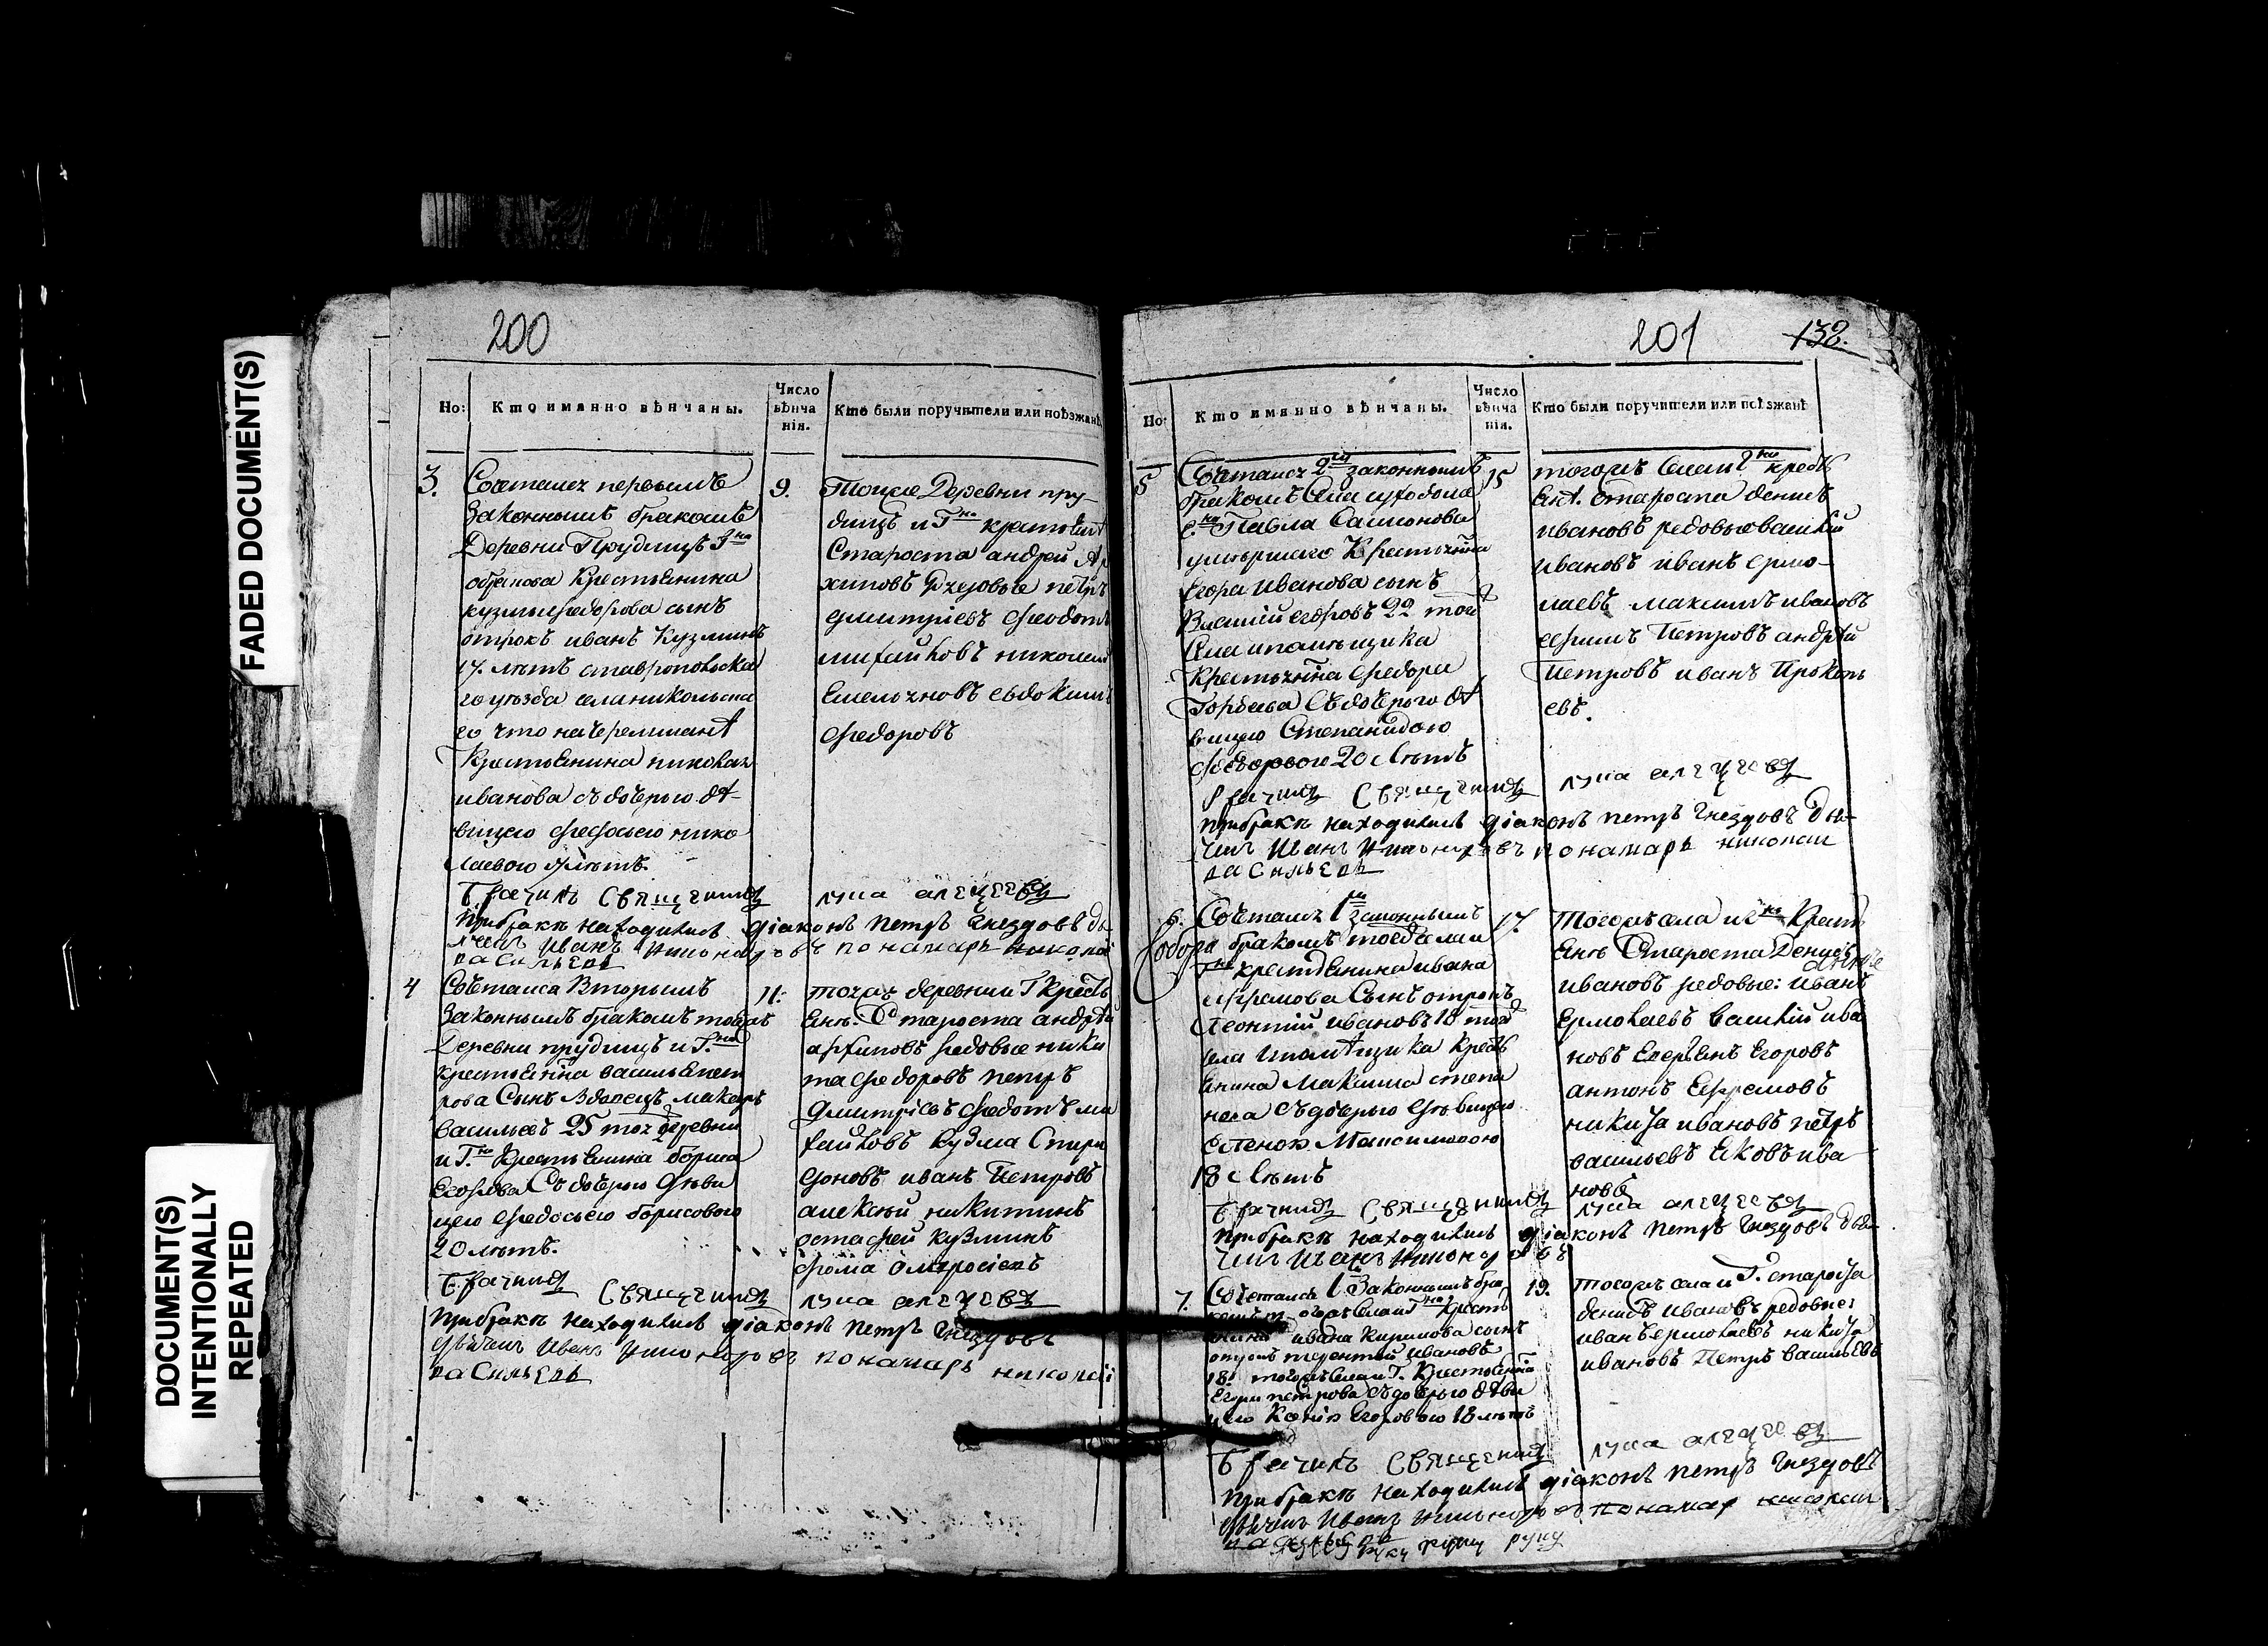 FADED DOCUMENT(S)
DOCUMENT(S)
INTENTIONALLY
REPEATED
200
Но:
Кто имянно вѣнчаны.
Число
вѣнча
нія.
Кто были поручители или поѣзжанѣ
3.
Сочетался первымъ
законнымъ бракомъ
Деревни Прудищъ Гна
крестьянина
кузмы федорова сынъ
отрокъ иванъ Кузминъ
17. лѣтъ ставропольска
го уѣзда села никольска
го что на черемшанѣ
Крестьянина николая
иванова съ дочерью дѣ-
вицею федосьею нико
лаевою лѣтъ.
9.
Тояже Деревни пру-
дищъ и Гна крестьянѣ
Староста андрей Ар
хиповъ рядовые петръ
дмитріевъ федотъ
михайловъ николай
Емельяновъ евдокимъ
федоровъ
Брачилъ Священникъ лука алецеевъ
при бракѣ находились діаконъ петръ Гнездовъ дь
ячекъ Иванъ Никоноровъ понамарь николай
васильевъ
4
Сочетался Вторымъ
законнымъ бракомъ тояжъ
Деревни прудищъ и Г.на
крестьянина василья пет
рова Сынъ вдовецъ макаръ
васильевъ 25 тояж деревни
и Г.на Крестьянина бориса
Егорова Съ дочерью дѣви
цею федосьею борисовою
20 лѣтъ.
11.
тояж деревни и Г крестья
янѣ. Староста андрѣй
архиповъ рядовые ники
та федоровъ петръ
Дмитріевъ федотъ ми
хайловъ Кузма Спири
доновъ иванъ Петровъ
алексѣй никитинъ
остафей Кузминъ
фома Амвросіевъ
Брачилъ Священникъ лука алецеевъ
при бракѣ находились діаконъ петръ Гнездовъ
дьячекъ Иванъ Никоноровъ понамарь николай
васильевъ
201
132.
Но:
Кто имянно вѣнчаны.
Число
вѣнча
нія.
Кто были поручители или поѣзжанѣ
5
Сочетался 2мъ законнымъ
бракомъ Села
Г.на Павла Самсонова
умершаго Крестьянина
Егора Иванова сынъ
Василій егоровъ 22 тогож
села и помѣщика
Крестьянина Федора
Горбаева Съ дочерью дѣ
вицею Степанидою
федоровою 20 лѣтъ
15
тогожъ Села и Гна крестья
янѣ. Староста денисъ
ивановъ редовые василий
ивановъ иванъ ермо-
лаевъ максимъ ивановъ
ефимъ Петровъ андрѣй
Петровъ иванъ Прокопь
евъ.
Брачилъ Священникъ лука алецеевъ
при бракѣ находились діаконъ петръ Гнездовъ дья-
чекъ Иванъ Никоноровъ понамарь николай
васильевъ
6.
Сочетался 1мъ законнымъ
бракомъ тогожъ села и
Гна крестьянина ивана
ефремова Сынъ отрокъ
Леонтій ивановъ 18 тогож
села и помѣщика Кресть
янина Максима степа
нова съ дочерью дѣвицею
Максимовою
18 лѣтъ
17.
Тогожъ села и Гна Кресть
янѣ Староста Денисъ
ивановъ редовые: Иванъ
Ермолаевъ Василій ива
новъ Егоровъ
антонъ Ефремовъ
никита ивановъ петръ
васильевъ Яковъ ива
новъ
Брачилъ Священникъ лука алецеевъ
при бракѣ находились діаконъ петръ Гнездовъ дья-
чекъ Иванъ Никоноровъ
7.
Сочетался 1 законнымъ бра
комъ тогожъ Села и Гна Кресть
янина ивана Кирилова сынъ
отрокъ терентий ивановъ
18. тогожъ Села и Г. Крестьянина
Егора петрова съ дочерью дѣви
цею Егоровою 18 лѣтъ
19.
тогожъ села и Г. староста
денисъ Ивановъ редовые:
иванъ ермолаевъ никита
ивановъ Петръ васильевъ
Брачилъ Священникъ лука алецеевъ
при бракѣ находились діаконъ петръ Гнездовъ
дьячекъ Иванъ Никоноровъ понамарь николай
васильевъ руку руку руку